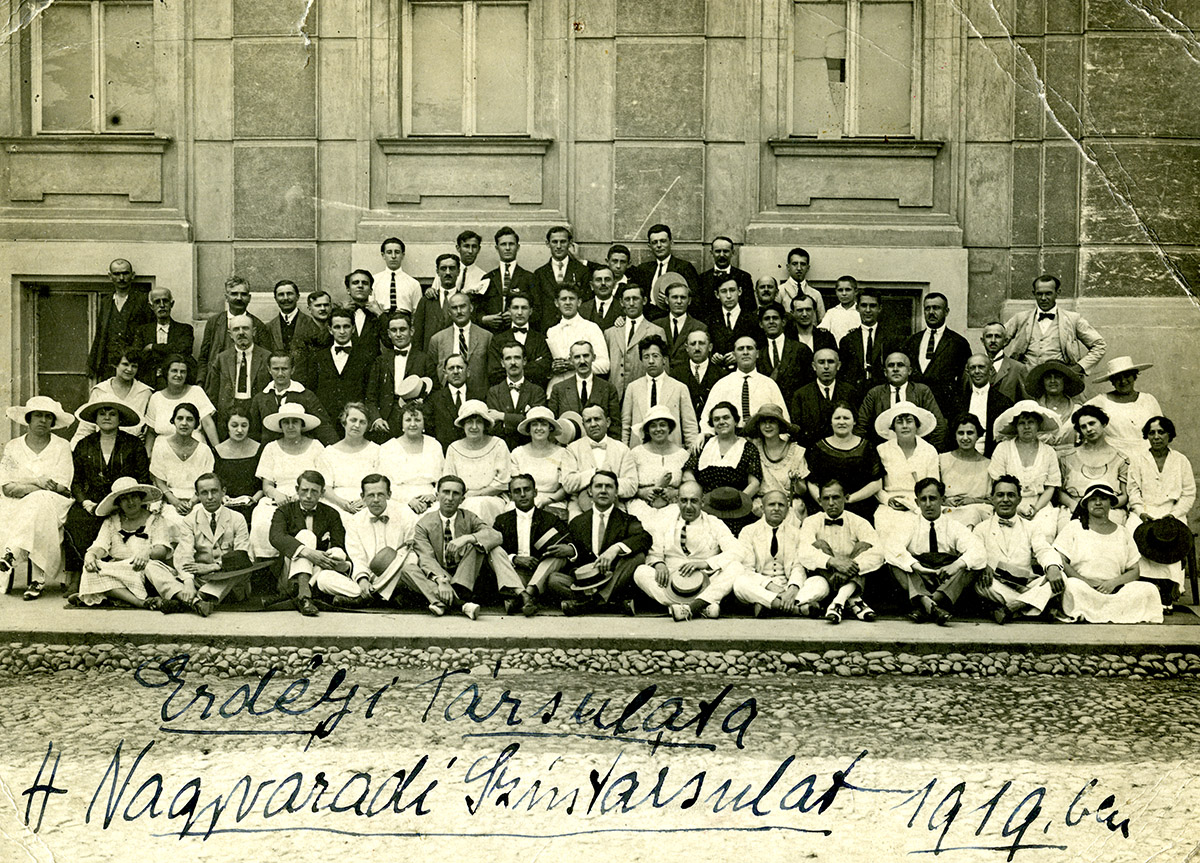 Erdélyi társulata
A Nagyváradi Színtársulat 1919.ben